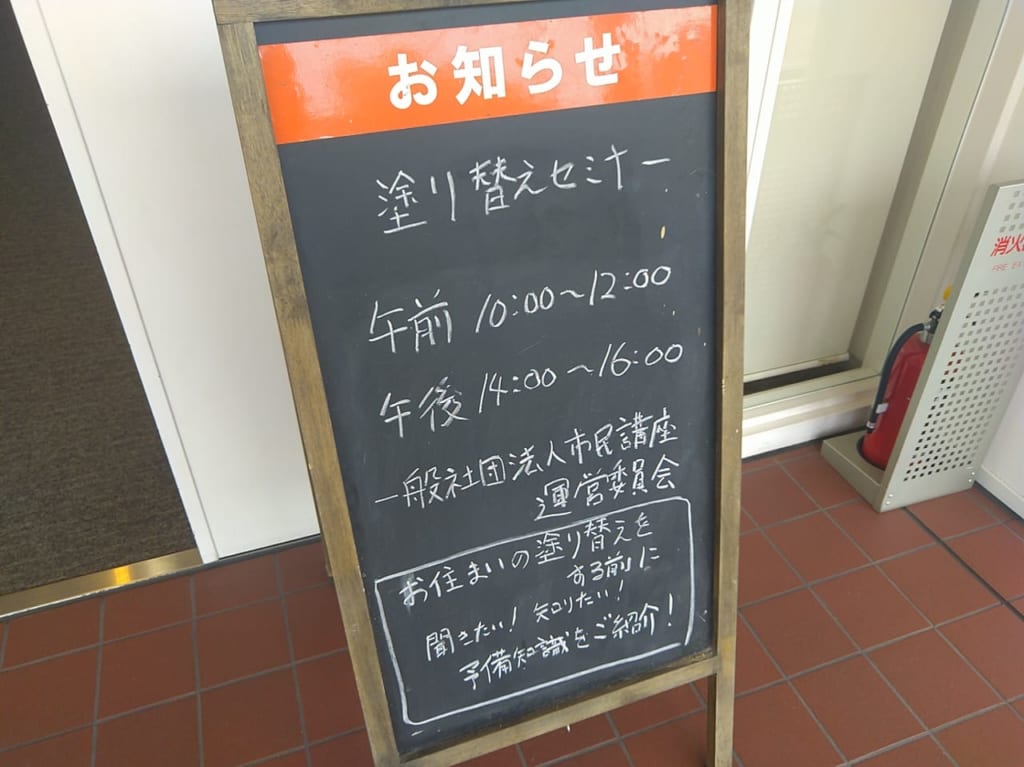 お知らせ
塗り替えセミナー
午前 10:00～12:00
午後 14:00～16:00
一般社団法人市民講座
運営委員会
お住まいの塗り替えを
する前に
聞きたい！知りたい！
予備知識をご紹介！
消火
FIRE EX